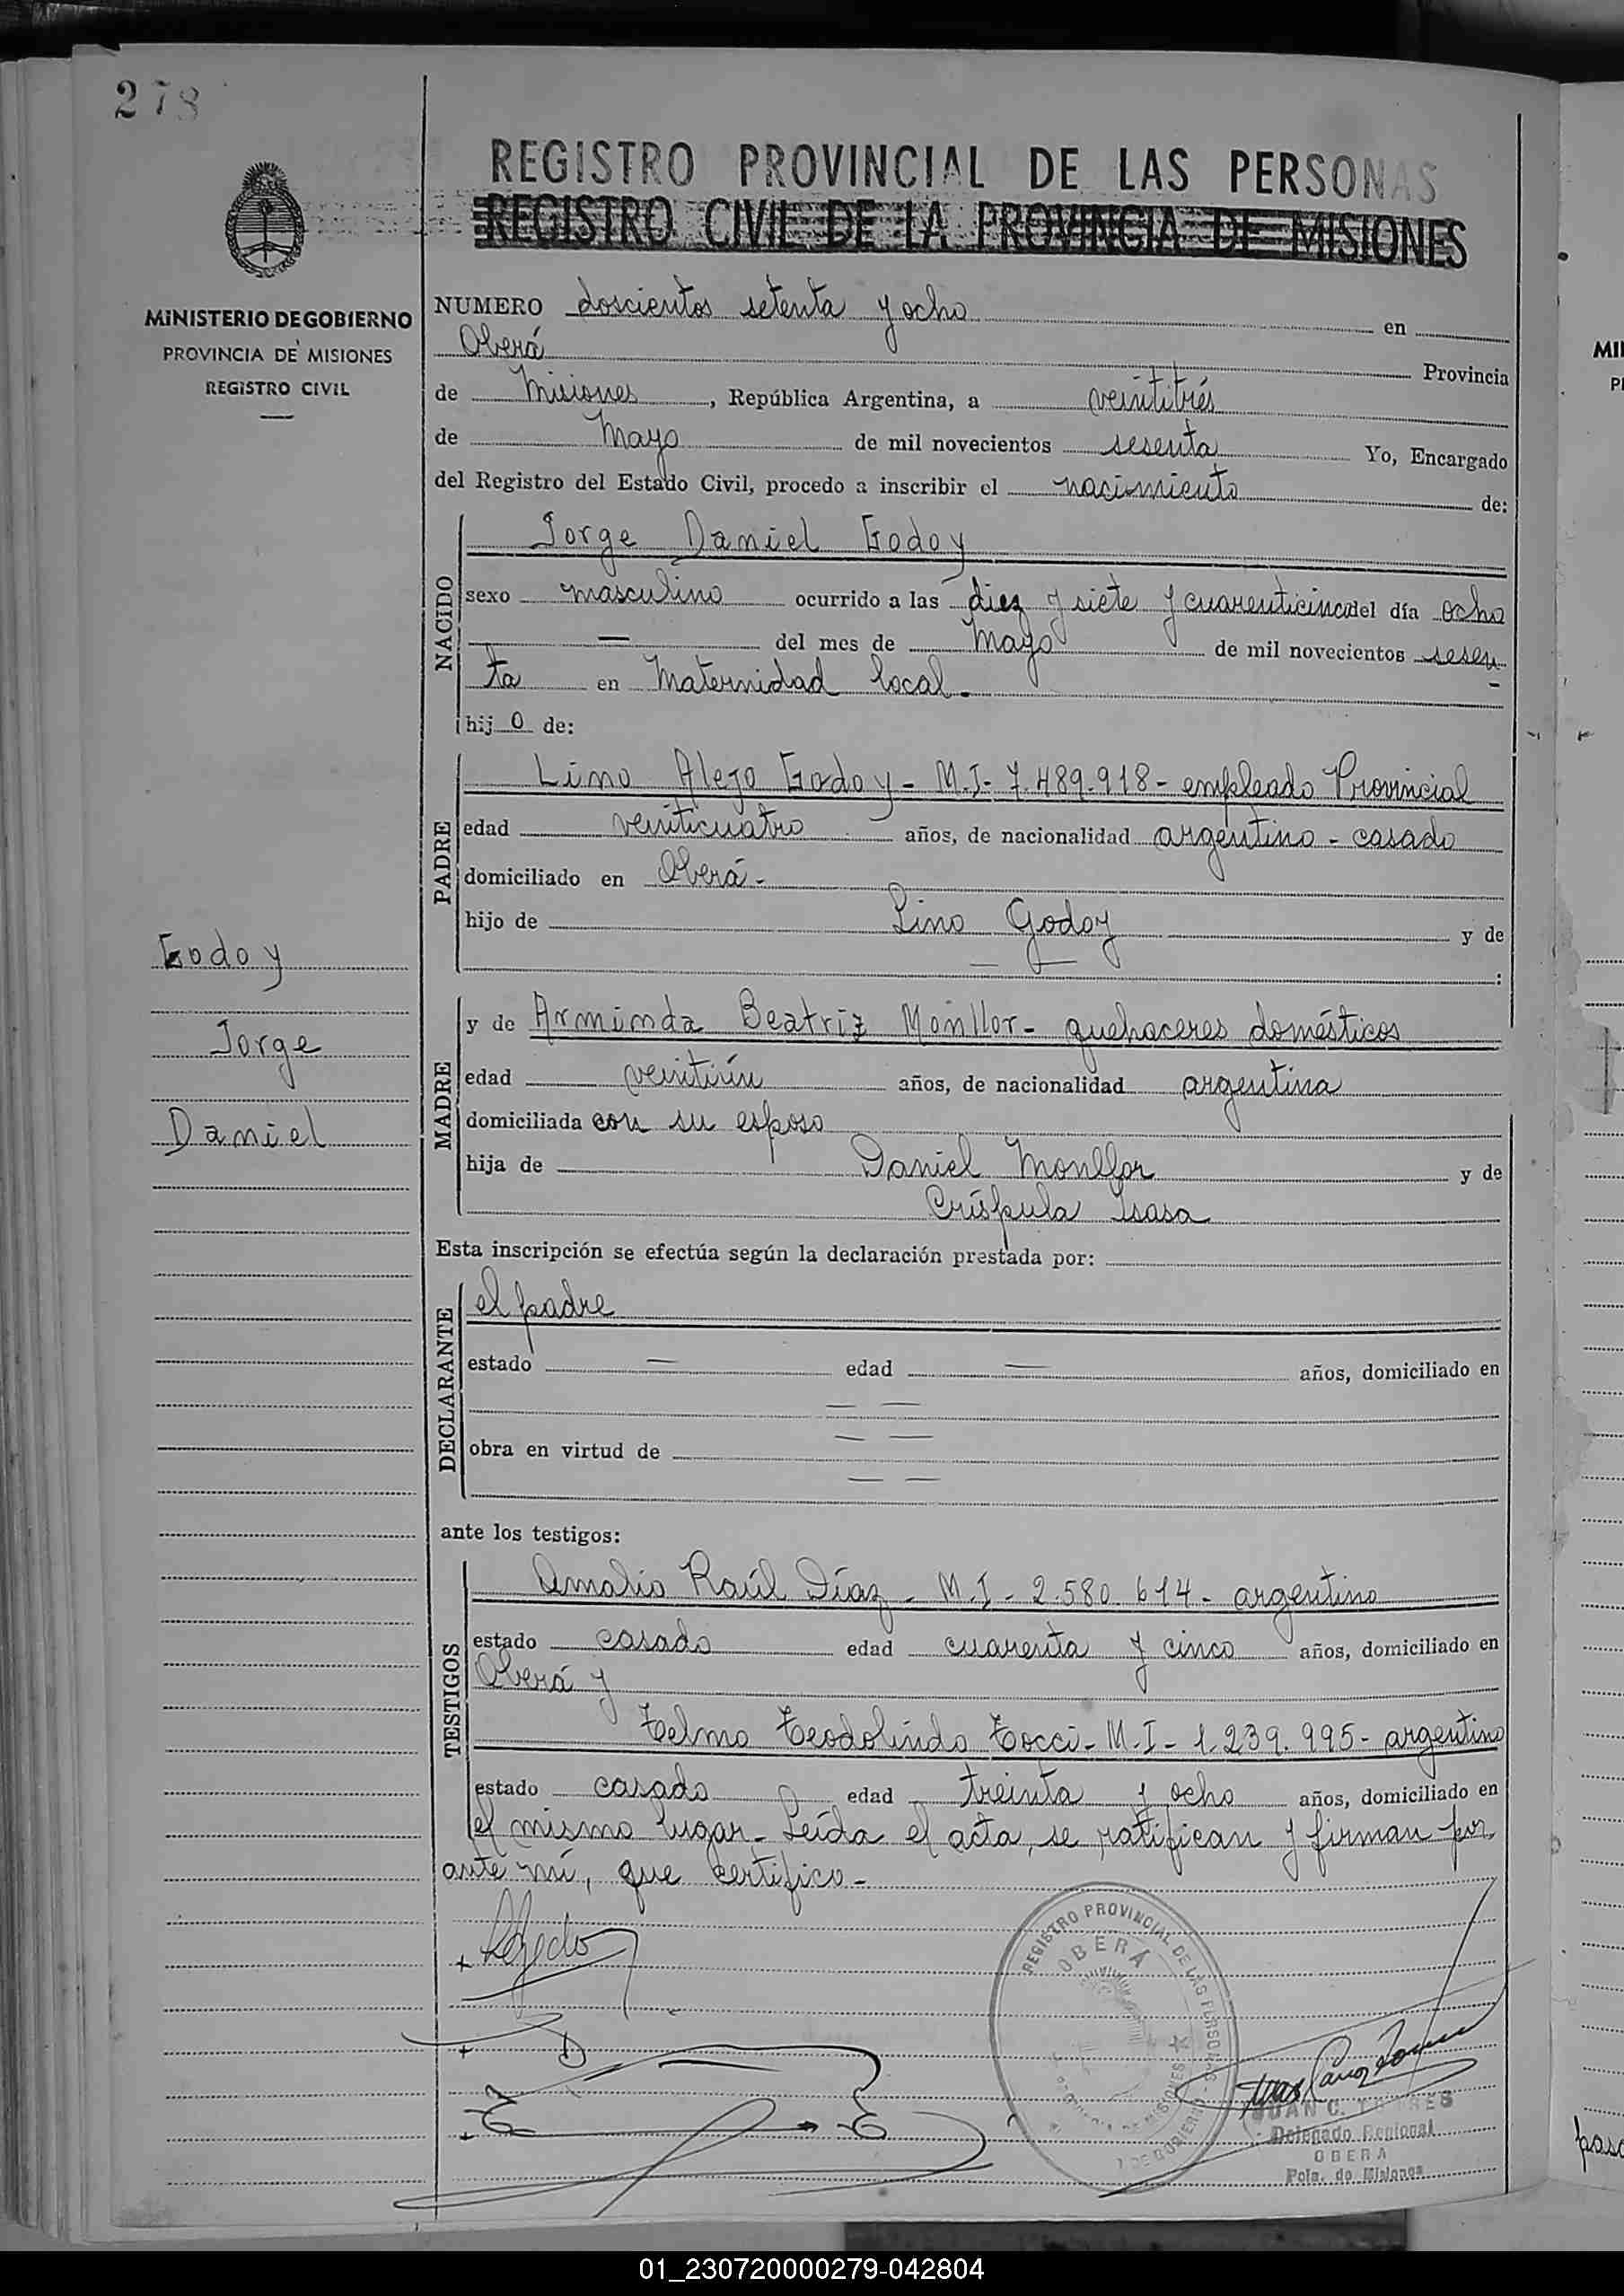 278
REGISTRO PROVINCIAL DE LAS PERSONAS
REGISTRO CIVIL DE LA PROVINCIA DE MISIONES
MINISTERIO DE GOBIERNO
PROVINCIA DE MISIONES
REGISTRO CIVIL
NUMERO doscientos setenta y ocho en
Oberá Provincia
de Misiones, República Argentina, a veintitrés
de Mayo de mil novecientos sesenta Yo, Encargado
del Registro del Estado Civil, procedo a inscribir el nacimiento de:
NACIDO
Jorge Daniel Godoy
sexo masculino ocurrido a las diez y siete y cuarenticinco del día ocho
— del mes de Mayo de mil novecientos sesen
ta en Maternidad local.
hijo de:
PADRE
Lino Alejo Godoy - M.I- 7.489.918 - empleado Provincial
edad veinticuatro años, de nacionalidad argentino - casado
domiciliado en Oberá -
hijo de Lino Godoy y de
— — :
Godoy
Jorge
Daniel
MADRE
y de Arminda Beatriz Monllor - quehaceres domésticos
edad veintiún años, de nacionalidad argentina
domiciliada con su esposo
hija de Daniel Monllor y de
Críspula Isasa
Esta inscripción se efectúa según la declaración prestada por:
DECLARANTE
el padre
estado — edad — años, domiciliado en
— —
obra en virtud de — —
— —
ante los testigos:
TESTIGOS
Amalio Raúl Díaz - M.I - 2.580.614 - argentino
estado casado edad cuarenta y cinco años, domiciliado en
Oberá y
Telmo Teodolindo Tocci - M.I - 1.239.995 - argentino
estado casado edad treinta y ocho años, domiciliado en
el mismo lugar - Leída el acta, se ratifican y firman por
ante mí, que certifico -
REGISTRO PROVINCIAL DE LAS PERSONAS
OBERÁ
JUAN C. TORRES
Delegado Regional
OBERA
Pcia. de Misiones
MI
P
01_230720000279-042804